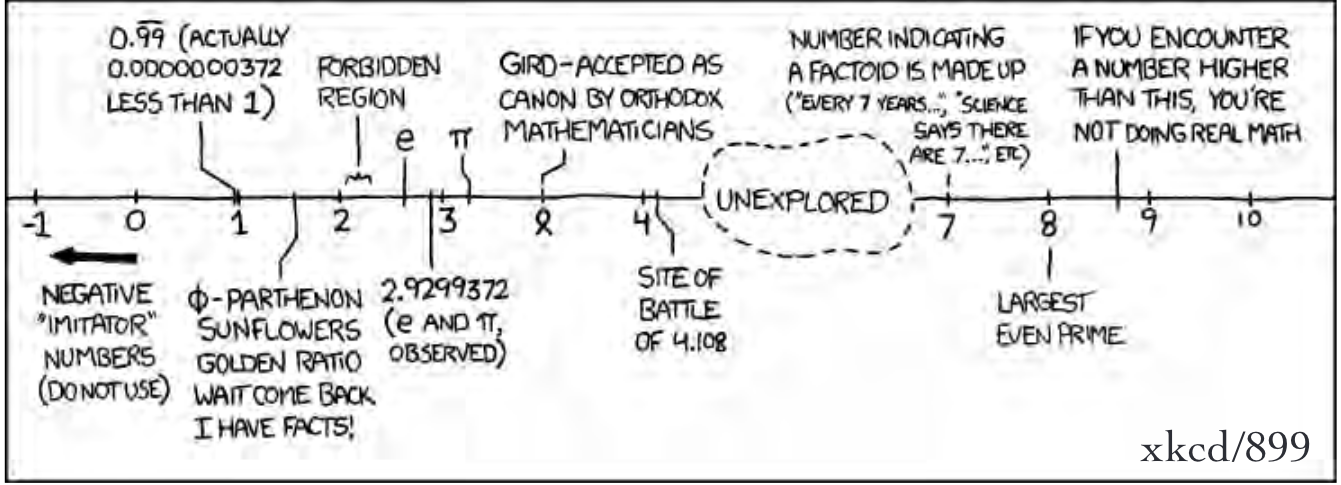 0.99 (ACTUALLY
0.0000000372
LESS THAN 1)
FORBIDDEN
REGION
e
π
GIRD-ACCEPTED AS
CANON BY ORTHODOX
MATHEMATICIANS
NUMBER INDICATING
A FACTOID IS MADE UP
("EVERY 7 YEARS...", "SCIENCE
SAYS THERE
ARE 7...", ETC)
IF YOU ENCOUNTER
A NUMBER HIGHER
THAN THIS, YOU'RE
NOT DOING REAL MATH
UNEXPLORED
-1 0 1 2 3 4 7 8 9 10
NEGATIVE
"IMITATOR"
NUMBERS
(DO NOT USE)
ϕ-PARTHENON
SUNFLOWERS
GOLDEN RATIO
WAIT COME BACK
I HAVE FACTS!
2.9299372
(e AND π,
OBSERVED)
SITE OF
BATTLE
OF 4.108
LARGEST
EVEN PRIME
xkcd/899